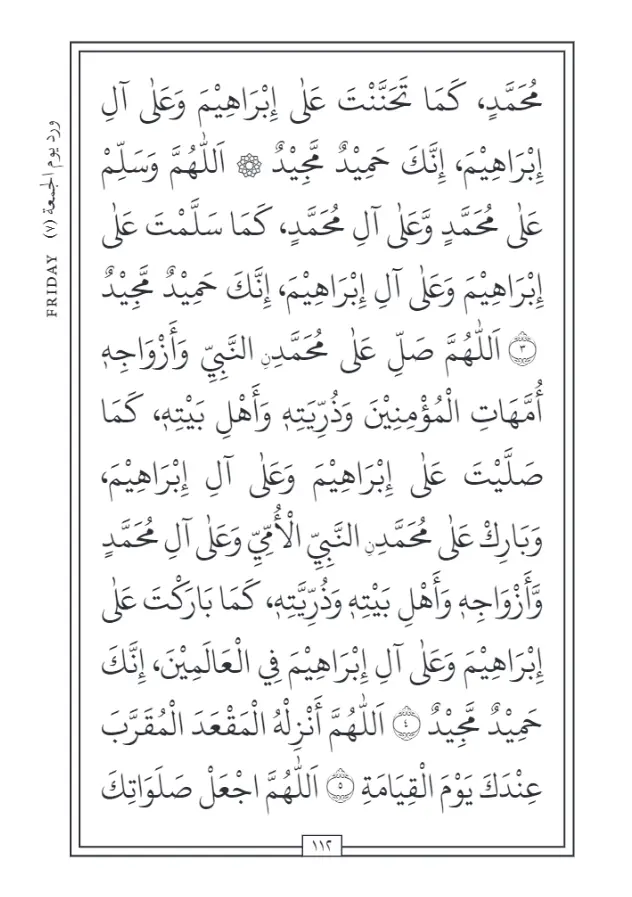 مُحَمَّدٍ، كَمَا تَحَنَّنْتَ عَلٰى إِبْرَاهِيْمَ وَعَلٰى آلِ
إِبْرَاهِيْمَ، إِنَّكَ حَمِيْدٌ مَّجِيْدٌ ۞ اَللّٰهُمَّ وَسَلِّمْ
عَلٰى مُحَمَّدٍ وَّعَلٰى آلِ مُحَمَّدٍ، كَمَا سَلَّمْتَ عَلٰى
إِبْرَاهِيْمَ وَعَلٰى آلِ إِبْرَاهِيْمَ، إِنَّكَ حَمِيْدٌ مَّجِيْدٌ
۝٣ اَللّٰهُمَّ صَلِّ عَلٰى مُحَمَّدِنِ النَّبِيِّ وَأَزْوَاجِهٖ
أُمَّهَاتِ الْمُؤْمِنِيْنَ وَذُرِّيَتِهٖ وَأَهْلِ بَيْتِهٖ، كَمَا
صَلَّيْتَ عَلٰى إِبْرَاهِيْمَ وَعَلٰى آلِ إِبْرَاهِيْمَ،
وَبَارِكْ عَلٰى مُحَمَّدِنِ النَّبِيِّ الْأُمِّيِّ وَعَلٰى آلِ مُحَمَّدٍ
وَّأَزْوَاجِهٖ وَأَهْلِ بَيْتِهٖ وَذُرِّيَّتِهٖ، كَمَا بَارَكْتَ عَلٰى
إِبْرَاهِيْمَ وَعَلٰى آلِ إِبْرَاهِيْمَ فِي الْعَالَمِيْنَ، إِنَّكَ
حَمِيْدٌ مَّجِيْدٌ ۝٤ اَللّٰهُمَّ أَنْزِلْهُ الْمَقْعَدَ الْمُقَرَّبَ
عِنْدَكَ يَوْمَ الْقِيَامَةِ ۝٥ اَللّٰهُمَّ اجْعَلْ صَلَوَاتِكَ
١١٢
ورد يوم الجمعة (٧)
FRIDAY